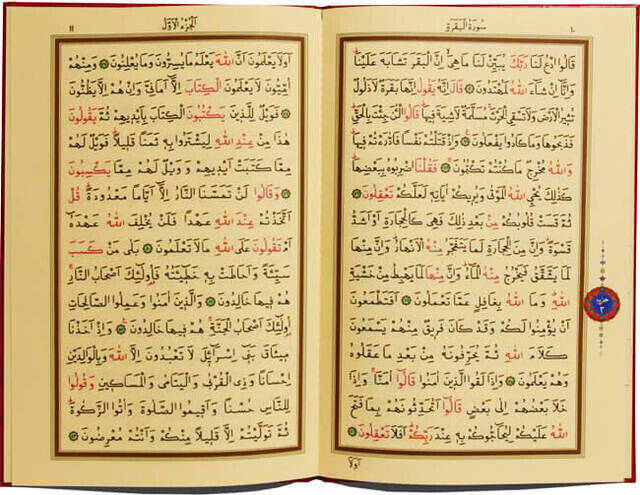 ١٠ سُورَةُ الْبَقَرَةِ
قَالُوا ادْعُ لَنَا رَبَّكَ يُبَيِّنْ لَنَا مَا هِيَ اِنَّ الْبَقَرَ تَشَابَهَ عَلَيْنَا
وَاِنَّا اِنْ شَاءَ اللّٰهُ لَمُهْتَدُونَ قَالَ اِنَّهُ يَقُولُ اِنَّهَا بَقَرَةٌ لَا ذَلُولٌ
تُثِيرُ الْاَرْضَ وَلَا تَسْقِي الْحَرْثَ مُسَلَّمَةٌ لَا شِيَةَ فِيهَا قَالُوا الْئٰنَ جِئْتَ بِالْحَقِّ
فَذَبَحُوهَا وَمَا كَادُوا يَفْعَلُونَ وَاِذْ قَتَلْتُمْ نَفْسًا فَادّٰرَءْتُمْ فِيهَا
وَاللّٰهُ مُخْرِجٌ مَا كُنْتُمْ تَكْتُمُونَ فَقُلْنَا اضْرِبُوهُ بِبَعْضِهَا
كَذٰلِكَ يُحْيِي اللّٰهُ الْمَوْتٰى وَيُرِيكُمْ اٰيَاتِهِ لَعَلَّكُمْ تَعْقِلُونَ
ثُمَّ قَسَتْ قُلُوبُكُمْ مِنْ بَعْدِ ذٰلِكَ فَهِيَ كَالْحِجَارَةِ اَوْ اَشَدُّ
قَسْوَةً وَاِنَّ مِنَ الْحِجَارَةِ لَمَا يَتَفَجَّرُ مِنْهُ الْاَنْهَارُ وَاِنَّ مِنْهَا
لَمَا يَشَّقَّقُ فَيَخْرُجُ مِنْهُ الْمَاءُ وَاِنَّ مِنْهَا لَمَا يَهْبِطُ مِنْ خَشْيَةِ
اللّٰهِ وَمَا اللّٰهُ بِغَافِلٍ عَمَّا تَعْمَلُونَ اَفَتَطْمَعُونَ
اَنْ يُؤْمِنُوا لَكُمْ وَقَدْ كَانَ فَرِيقٌ مِنْهُمْ يَسْمَعُونَ
كَلَامَ اللّٰهِ ثُمَّ يُحَرِّفُونَهُ مِنْ بَعْدِ مَا عَقَلُوهُ
وَهُمْ يَعْلَمُونَ وَاِذَا لَقُوا الَّذِينَ اٰمَنُوا قَالُوا اٰمَنَّا وَاِذَا
خَلَا بَعْضُهُمْ اِلٰى بَعْضٍ قَالُوا اَتُحَدِّثُونَهُمْ بِمَا فَتَحَ
اللّٰهُ عَلَيْكُمْ لِيُحَاجُّوكُمْ بِهِ عِنْدَ رَبِّكُمْ اَفَلَا تَعْقِلُونَ
اَوَلَا
حزب ٢
اَلْجُزْءُ الْاَوَّلُ ١١
اَوَلَا يَعْلَمُونَ اَنَّ اللّٰهَ يَعْلَمُ مَا يُسِرُّونَ وَمَا يُعْلِنُونَ وَمِنْهُمْ
اُمِّيُّونَ لَا يَعْلَمُونَ الْكِتَابَ اِلَّا اَمَانِيَّ وَاِنْ هُمْ اِلَّا يَظُنُّونَ
فَوَيْلٌ لِلَّذِينَ يَكْتُبُونَ الْكِتَابَ بِاَيْدِيهِمْ ثُمَّ يَقُولُونَ
هٰذَا مِنْ عِنْدِ اللّٰهِ لِيَشْتَرُوا بِهِ ثَمَنًا قَلِيلًا فَوَيْلٌ لَهُمْ
مِمَّا كَتَبَتْ اَيْدِيهِمْ وَوَيْلٌ لَهُمْ مِمَّا يَكْسِبُونَ
وَقَالُوا لَنْ تَمَسَّنَا النَّارُ اِلَّا اَيَّامًا مَعْدُودَةً قُلْ
اَتَّخَذْتُمْ عِنْدَ اللّٰهِ عَهْدًا فَلَنْ يُخْلِفَ اللّٰهُ عَهْدَهُ
اَمْ تَقُولُونَ عَلَى اللّٰهِ مَا لَا تَعْلَمُونَ بَلٰى مَنْ كَسَبَ
سَيِّئَةً وَاَحَاطَتْ بِهِ خَطِيئَتُهُ فَاُولٰئِكَ اَصْحَابُ النَّارِ
هُمْ فِيهَا خَالِدُونَ وَالَّذِينَ اٰمَنُوا وَعَمِلُوا الصَّالِحَاتِ
اُولٰئِكَ اَصْحَابُ الْجَنَّةِ هُمْ فِيهَا خَالِدُونَ وَاِذْ اَخَذْنَا
مِيثَاقَ بَنِي اِسْرَائِلَ لَا تَعْبُدُونَ اِلَّا اللّٰهَ وَبِالْوَالِدَيْنِ
اِحْسَانًا وَذِي الْقُرْبٰى وَالْيَتَامٰى وَالْمَسَاكِينِ وَقُولُوا
لِلنَّاسِ حُسْنًا وَاَقِيمُوا الصَّلٰوةَ وَاٰتُوا الزَّكٰوةَ
ثُمَّ تَوَلَّيْتُمْ اِلَّا قَلِيلًا مِنْكُمْ وَاَنْتُمْ مُعْرِضُونَ